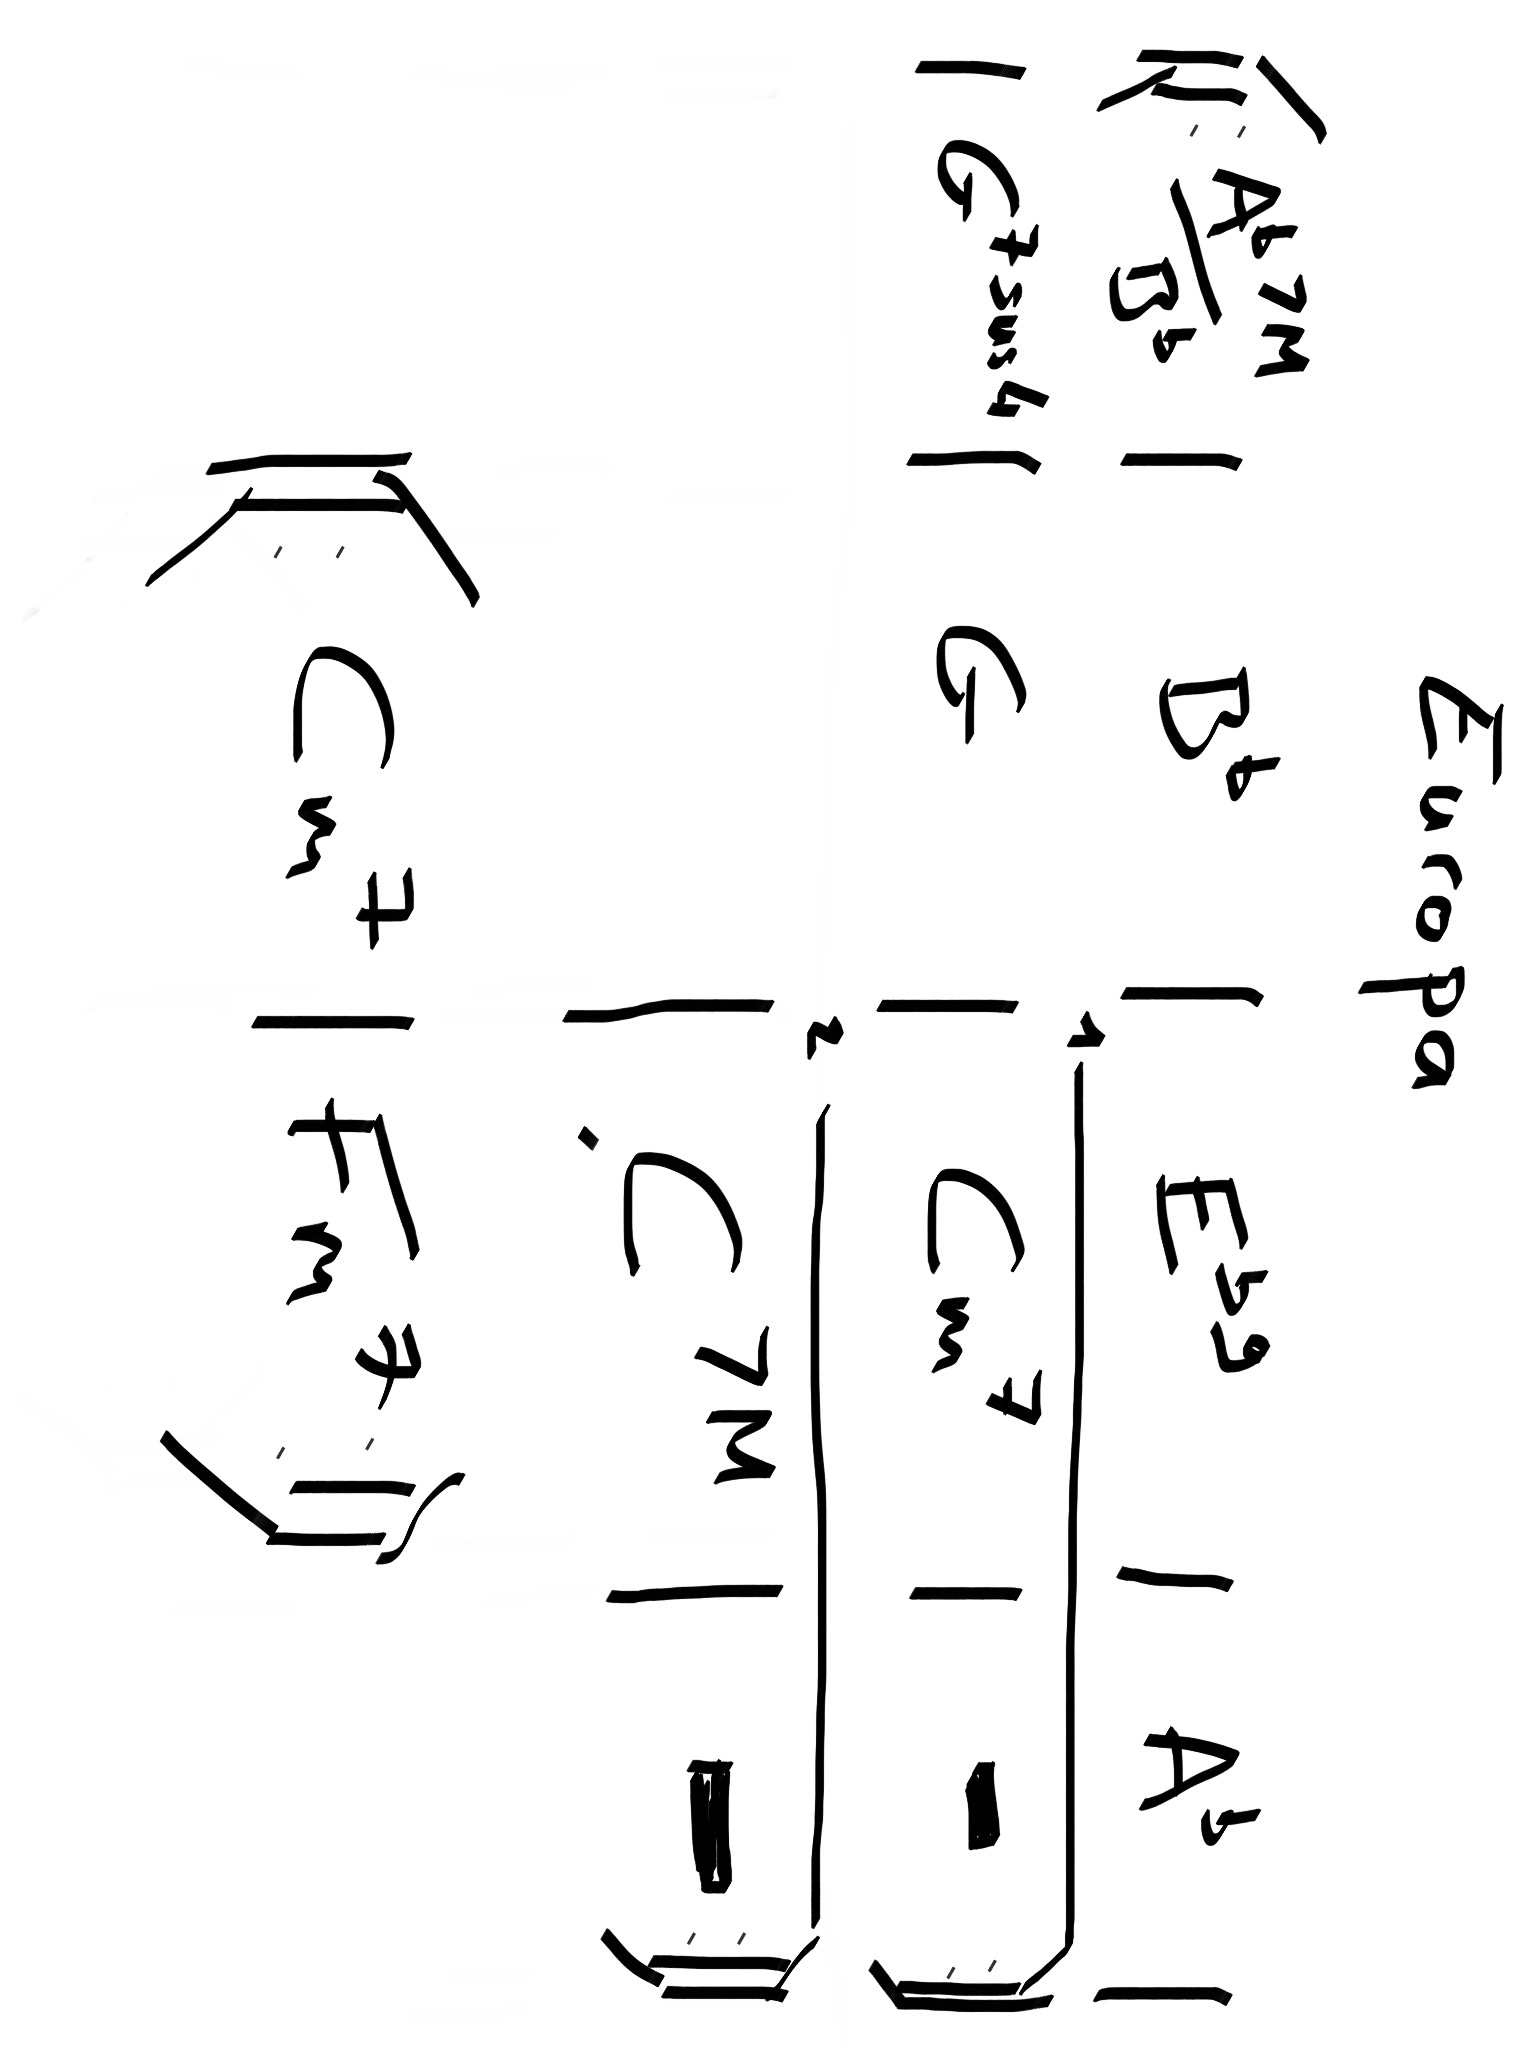 Europa
A♭7M/B♭ | B♭ | E♭9 | A♭ |
1
| G7sus4 | G | Cm7 | -
2
| C7M | -
Cm7 | Fm7